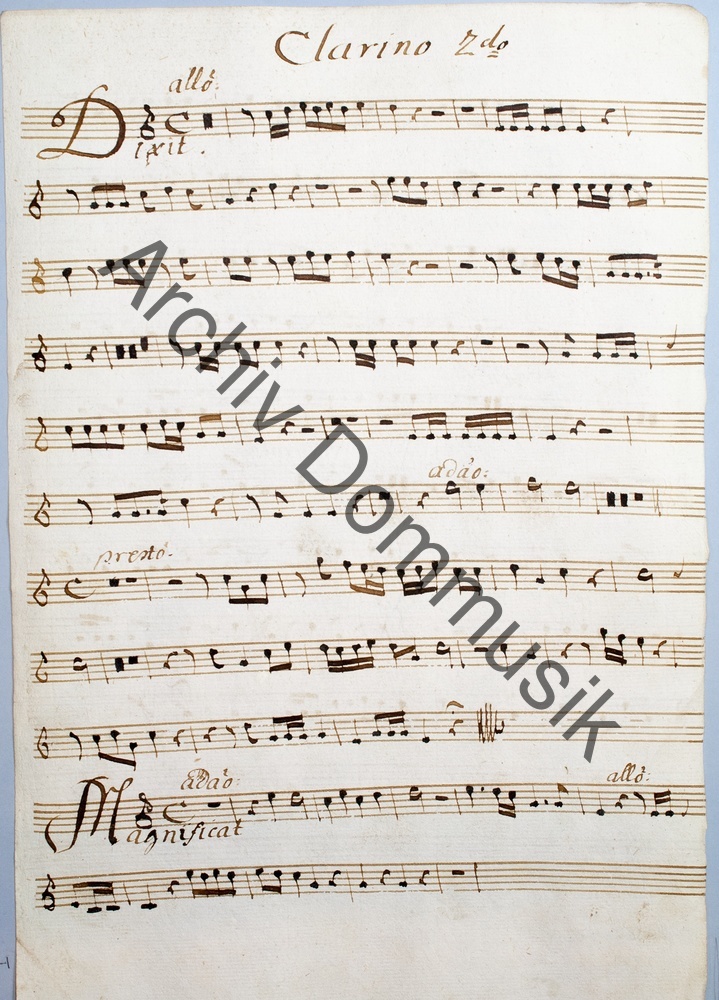 Clarino 2do
allo:
Dixit.
adão:
presto.
adão:
allo:
Magnificat
Archiv Dommusik